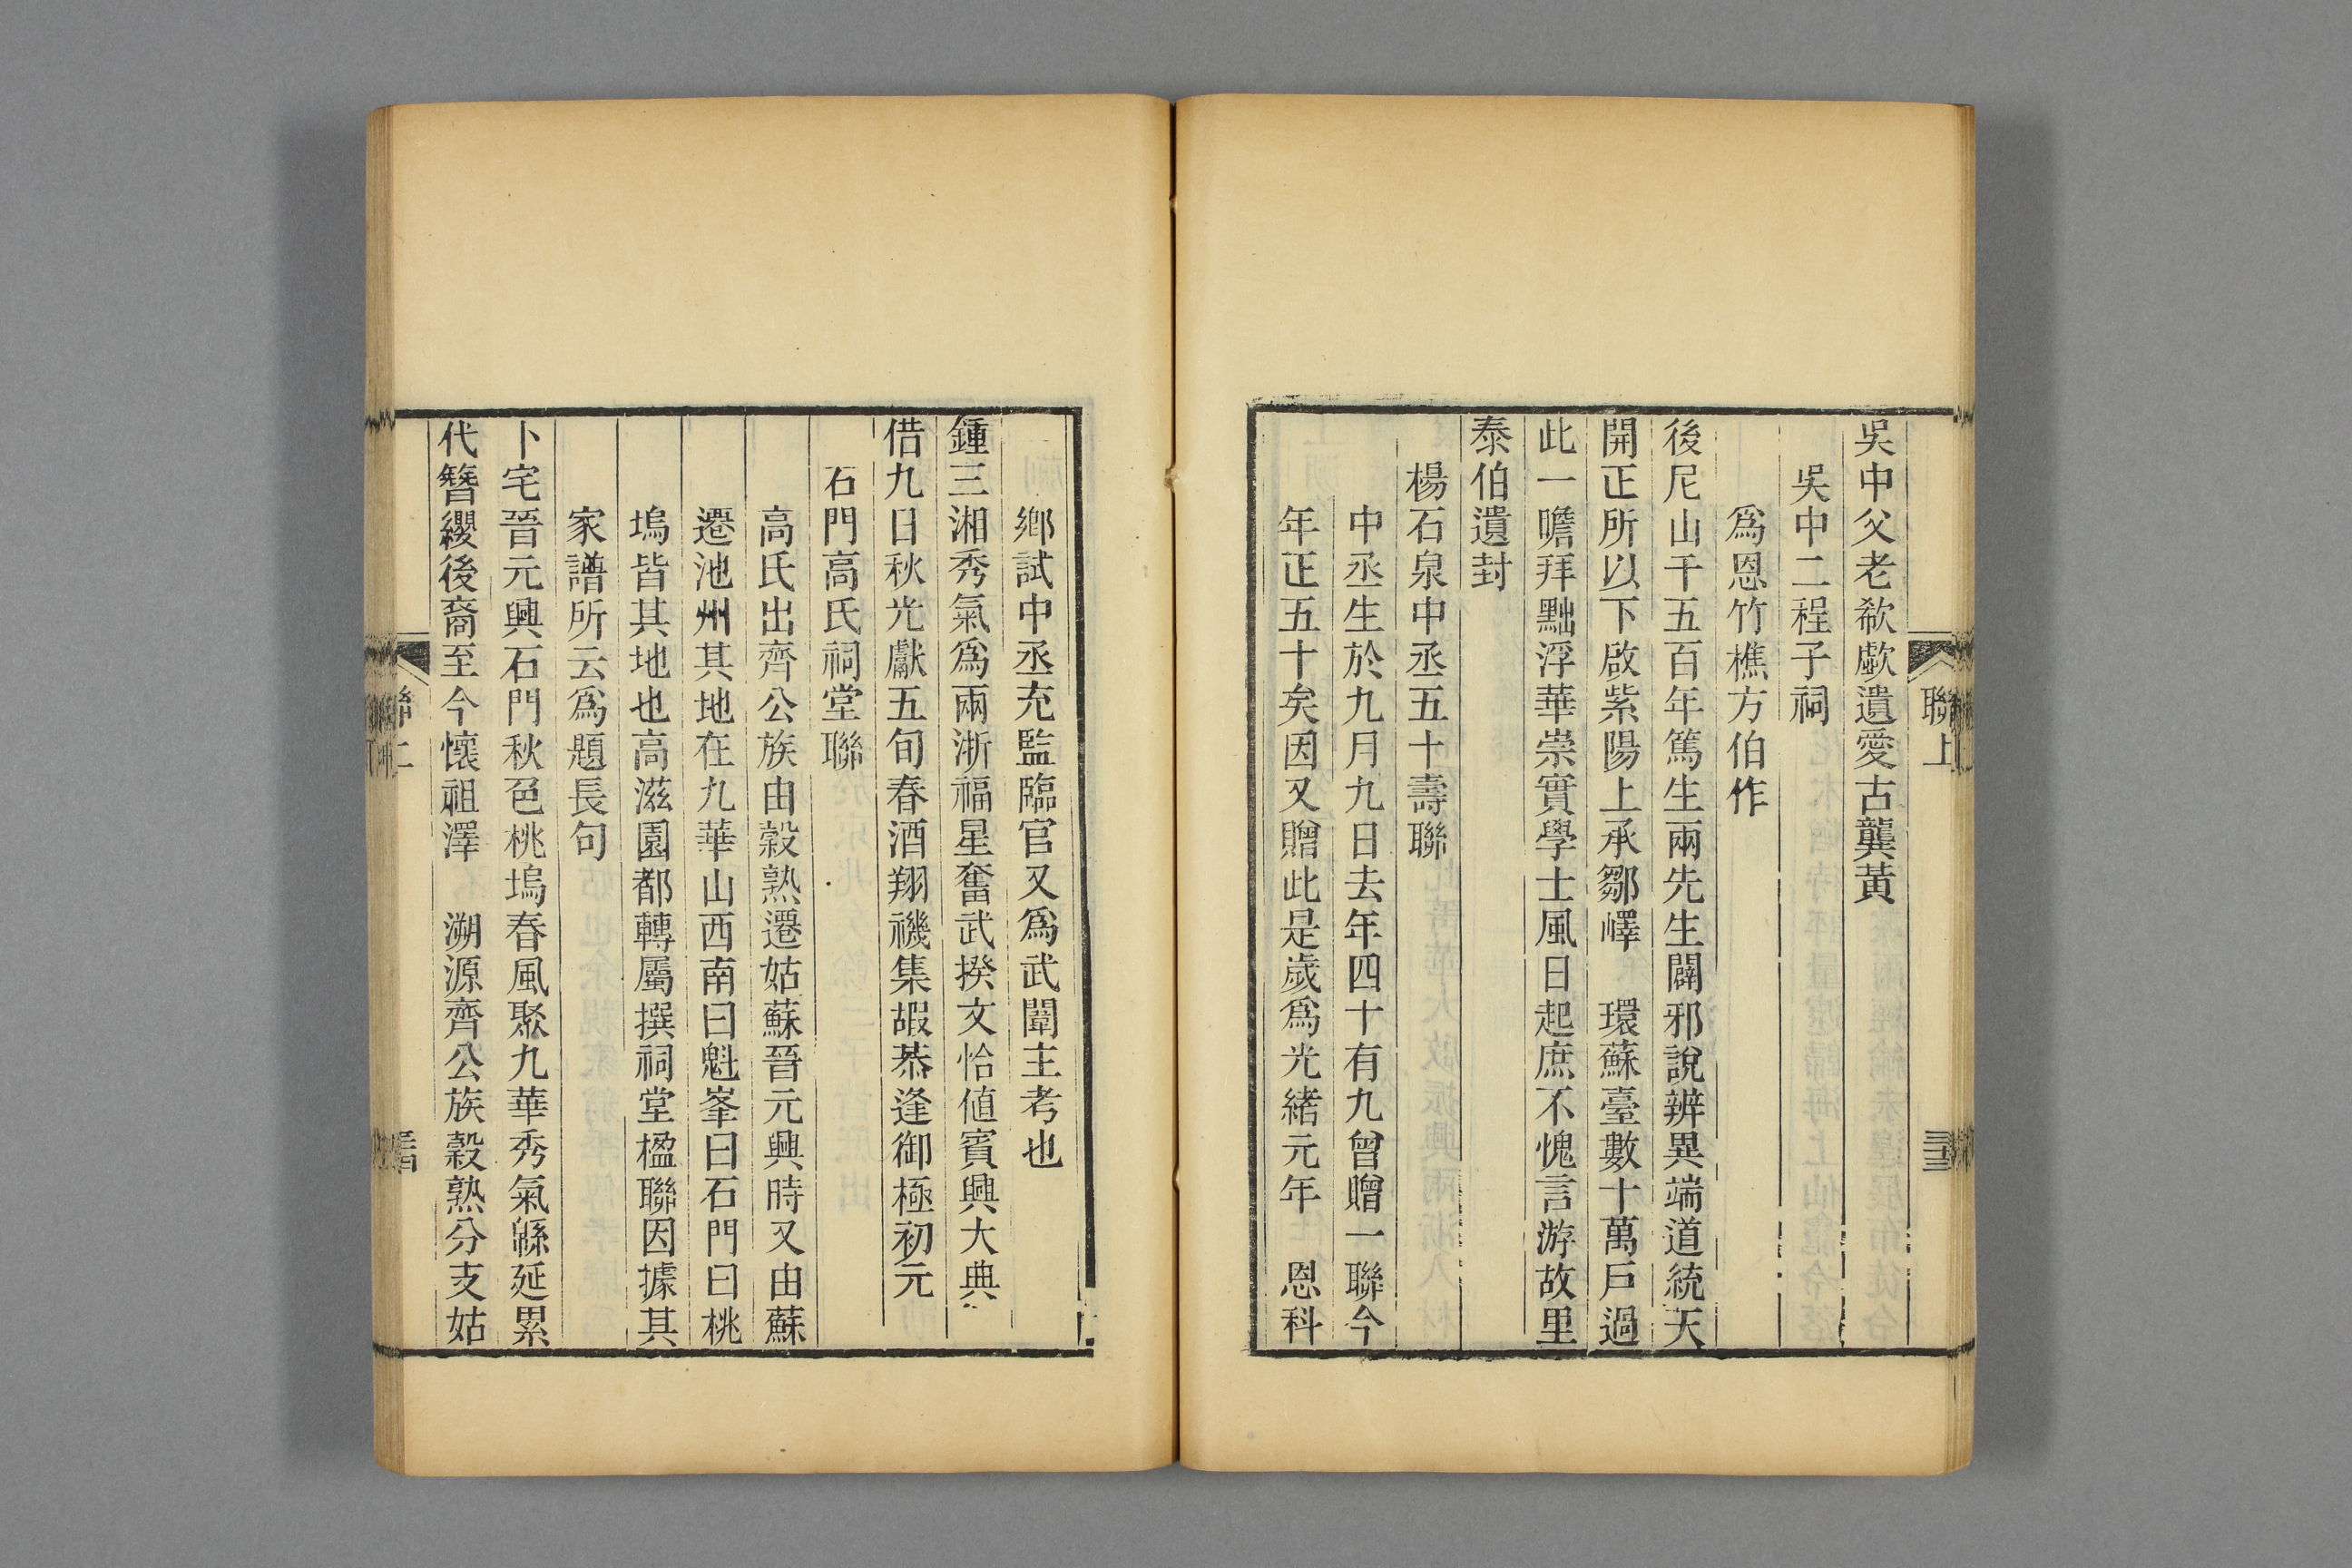 吳中父老欷歔遺愛古龔黃
吳中二程子祠
爲恩竹樵方伯作
後尼山千五百年篤生兩先生闢邪說辨異端道統天
開正所以下啟紫陽上承鄒嶧　環蘇臺數十萬戶過
此一瞻拜黜浮華崇實學士風日起庶不愧言游故里
泰伯遺封
楊石泉中丞五十壽聯
中丞生於九月九日去年四十有九曾贈一聯今
年正五十矣因又贈此是歲爲光緒元年　恩科
鄉試中丞充監臨官又爲武闈主考也
鍾三湘秀氣爲兩浙福星奮武揆文恰值賓興大典
借九日秋光獻五旬春酒翔禨集嘏恭逢御極初元
石門高氏祠堂聯
高氏出齊公族由穀熟遷姑蘇晉元興時又由蘇
遷池州其地在九華山西南曰魁峯曰石門曰桃
塢皆其地也高滋園都轉屬撰祠堂楹聯因據其
家譜所云爲題長句
卜宅晉元興石門秋色桃塢春風聚九華秀氣緜延累
代簪纓後裔至今懷祖澤　溯源齊公族穀熟分支姑
聯上
三十三